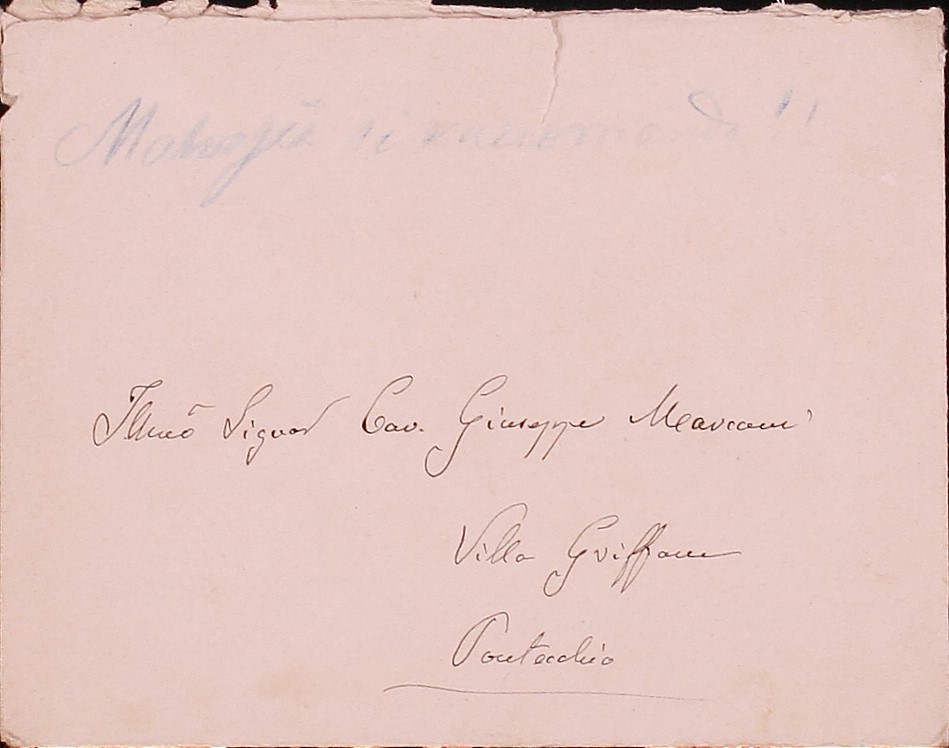 Malvagia si raccomanda!!
Illmõ Signor Cav. Giuseppe Marconi
Villa Griffone
Pontecchio